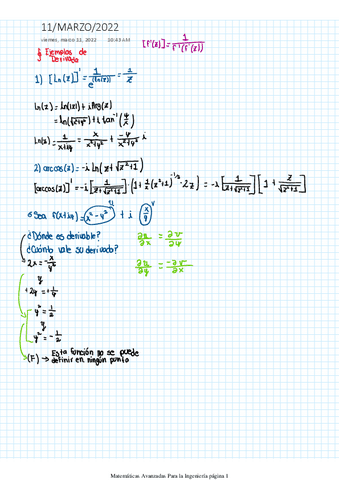 11/MARZO/2022
viernes, marzo 11, 2022 10:43 AM
[f'(z)] = 1/(f^-1(f(z)))
§ Ejemplos de
Derivada
1) [ln(z)]' = 1/e^(ln(z)) = 1/z
ln(z) = ln(|z|) + i Arg(z)
= ln(√(x²+y²)) + i tan^-1(y/x)
ln(z) = 1/(x+iy) = x/(x²+y²) + -y/(x²+y²) i
2) arccos(z) = -i ln(z+√(z²+1))
[arccos(z)]' = -i [1/(z+√(z²+1))] · (1+½(z²+1)^-1/2 · 2z) = -i [1/(z+√(z²+1))] [1 + z/√(z²+1)]
Sea f(x+iy) = (x² - y²) + i (x/y)
u v
¿Dónde es derivable?
¿Cuánto vale su derivada?
∂u/∂x = ∂v/∂y
2x = -x/y²
∂u/∂y = -∂v/∂x
y
+2y = +1/y
y² = 1/2
y
y² = -1/2
(F) → Esta función no se puede
definir en ningún punto
Matemáticas Avanzadas Para la Ingeniería página 1